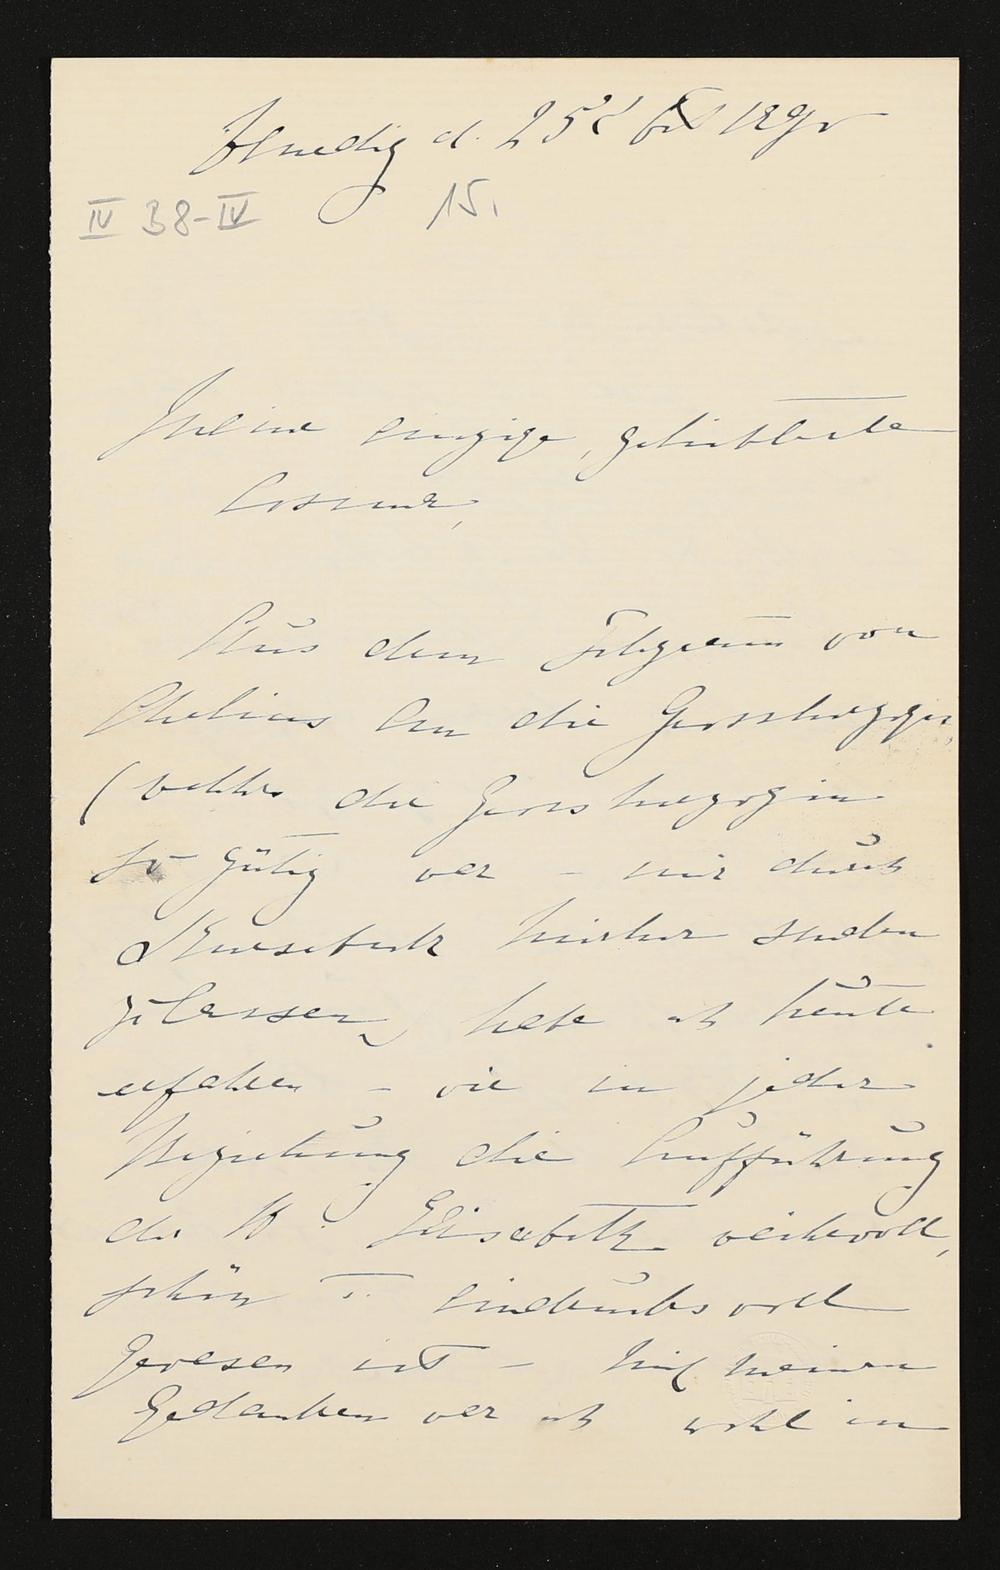 Venedig d. 25t 189
IV 38-IV 15.
Meine einzige, geliebteste
Cosima,
Aus dem Telegramm von
Chelius an die Grossherzogin,
(welches die Grossherzogin
so gütig war - mir durch
Knesebeck hierher senden
zu lassen) habe ich heute
erfahren - wie in jeder
Beziehung die Aufführung
der H. Elisabeth weihevoll,
schön u. eindrucksvoll
gewesen ist - Mit meinen
Gedanken war ich wohl in